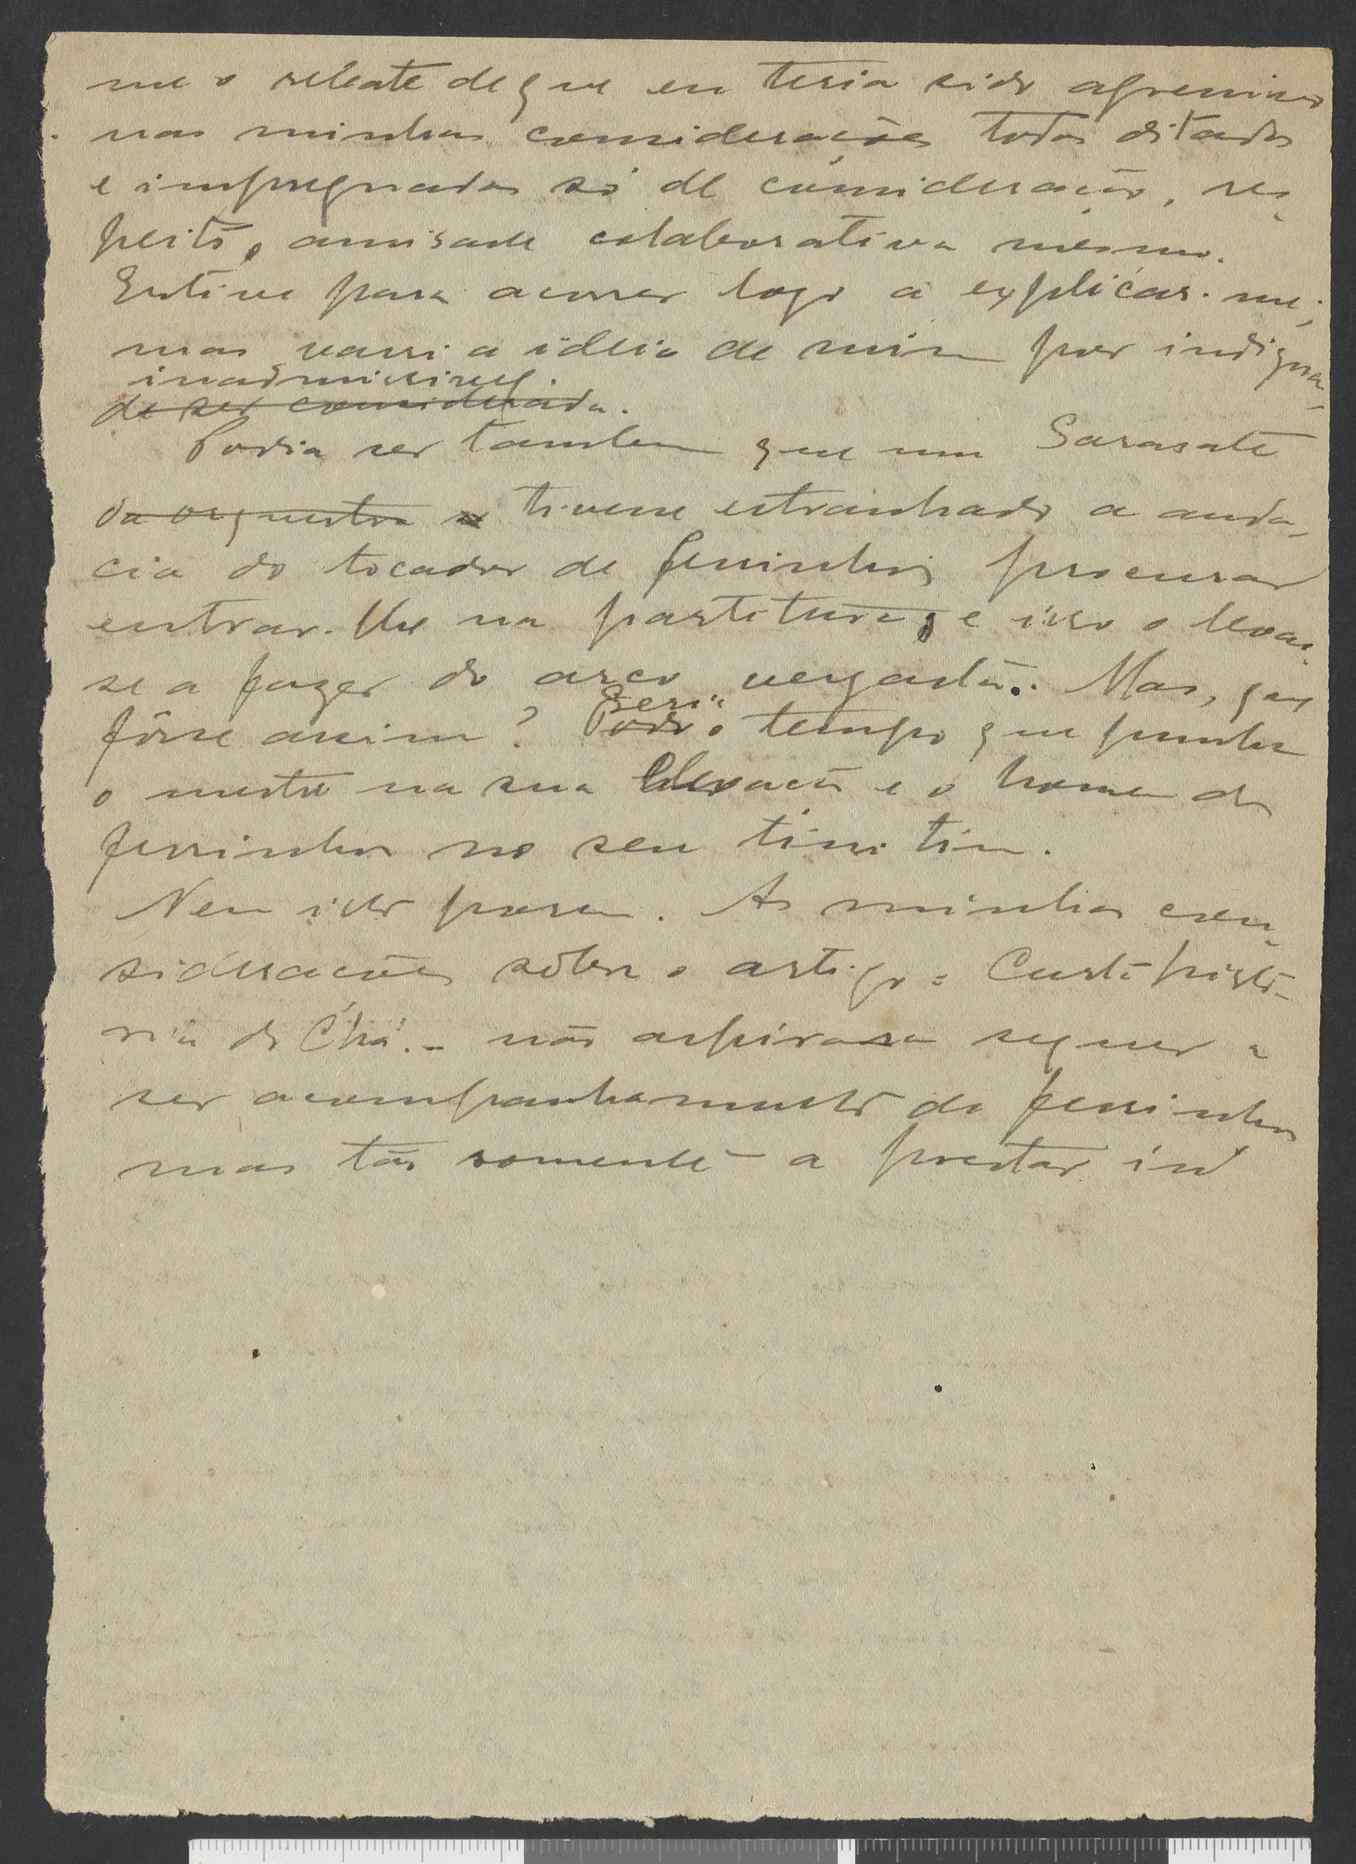 me o rebate de que eu teria sido
nas minhas considerações todas ditadas
e impregnadas só de consideração, res-
peito, amisade colaborativa mesmo.
Estive para acorrer logo a explicar-me;
mas varri a ideia de mim por indigna,
inadmissivel.
de ser considerada.
Podia ser tambem que um Sarasate
da orquestra tivesse estranhado a auda-
cia do tocador de ferrinhos procurar
entrar-lhe na partitura, e isso o levas-
se a fazer do arco vergasta. Mas, que
fôsse assim? Seria
o tempo que punha
o mestre na sua elevação e o homem dos
ferrinhos no seu tim tim.
Nem isso porem. As minhas con-
siderações sôbre o artigo = Curta histó-
ria do Chá. - não aspiravam sequer a
ser acompanhamento de ferrinhos
mas tão somente a prestar